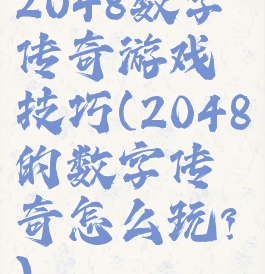 2048数字
传奇游戏
技巧(2048
的数字传
奇怎么玩?
)